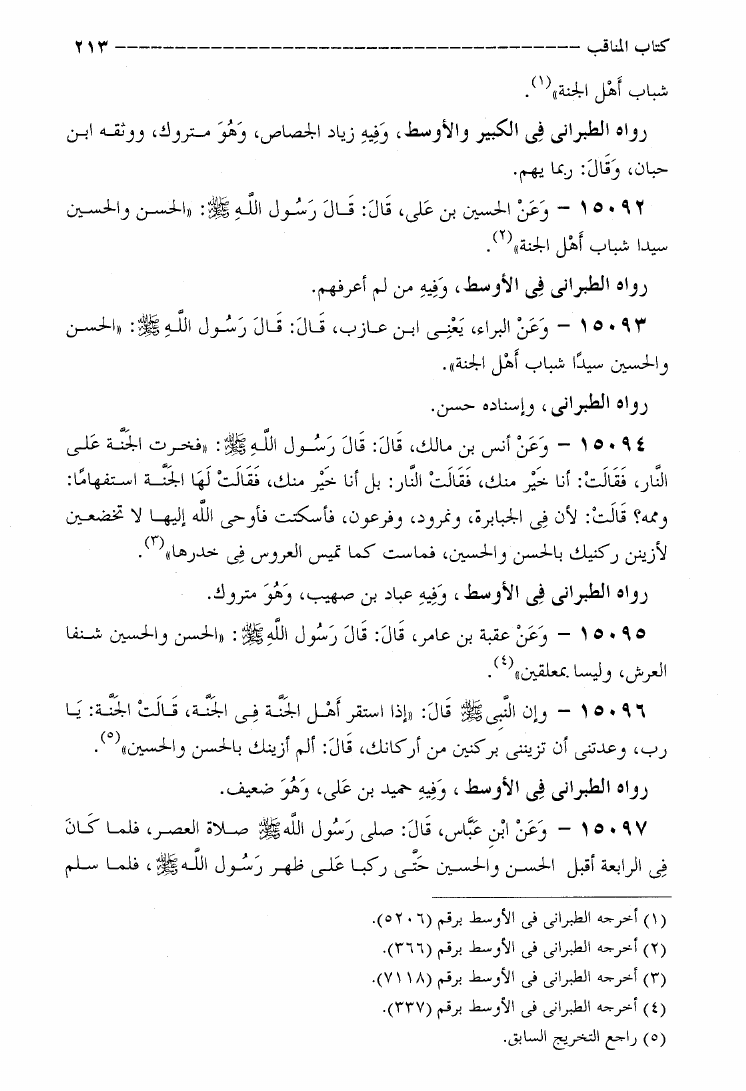 كتاب المناقب ---------------------------------------- ٢١٣
شباب أَهْل الجنة»(١).
رواه الطبرانى فِى الكبير والأوسط، وَفِيهِ زياد الجصاص، وَهُوَ متروك، ووثقه ابن
حبان، وَقَالَ: ربما يهم.
١٥٠٩٢ – وَعَنْ الحسين بن على، قَالَ: قَالَ رَسُول اللَّهِ ﷺ: «الحسن والحسين
سيدا شباب أَهْل الجنة»(٢).
رواه الطبرانى فِى الأوسط، وَفِيهِ من لم أعرفهم.
١٥٠٩٣ – وَعَنْ البراء، يَعْنِى ابن عازب، قَالَ: قَالَ رَسُول اللَّهِ ﷺ: «الحسن
والحسين سيدًا شباب أَهْل الجنة».
رواه الطبرانى، وإسناده حسن.
١٥٠٩٤ – وَعَنْ أنس بن مالك، قَالَ: قَالَ رَسُول اللَّهِ ﷺ: «فخرت الجَنَّة عَلَى
النَّار، فَقَالَتْ: أنا خَيْر منك، فَقَالَتْ النَّار: بل أنا خَيْر منك، فَقَالَتْ لَهَا الجَنَّة استفهامًا:
وممه؟ قَالَتْ: لأن فِى الجبابرة، ونمرود، وفرعون، فأسكتت فأوحى اللَّه إليها لا تخضعين
لأزينن ركنيك بالحسن والحسين، فماست كما تميس العروس فِى خدرها»(٣).
رواه الطبرانى فِى الأوسط، وَفِيهِ عباد بن صهيب، وَهُوَ متروك.
١٥٠٩٥ – وَعَنْ عقبة بن عامر، قَالَ: قَالَ رَسُول اللَّهِ ﷺ: «الحسن والحسين شنفا
العرش، وليسا بمعلقين»(٤).
١٥٠٩٦ – وإن النَّبِى ﷺ قَالَ: «إذا استقر أَهْل الجَنَّة فِى الجَنَّة، قَالَتْ الجَنَّة: يَا
رب، وعدتنى أن تزيننى بركنين من أركانك، قَالَ: ألم أزينك بالحسن والحسين»(٥).
رواه الطبرانى فِى الأوسط، وَفِيهِ حميد بن عَلى، وَهُوَ ضعيف.
١٥٠٩٧ – وَعَنْ ابْنِ عَبَّاس، قَالَ: صلى رَسُول اللَّه ﷺ صلاة العصر، فلما كَانَ
فِى الرابعة أقبل الحسن والحسين حَتَّى ركبا عَلَى ظهر رَسُول اللَّه ﷺ، فلما سلم
(١) أخرجه الطبرانى فى الأوسط برقم (٥٢٠٦).
(٢) أخرجه الطبرانى فى الأوسط برقم (٣٦٦).
(٣) أخرجه الطبرانى فى الأوسط برقم (٧١١٨).
(٤) أخرجه الطبرانى فى الأوسط برقم (٣٣٧).
(٥) راجع التخريج السابق.